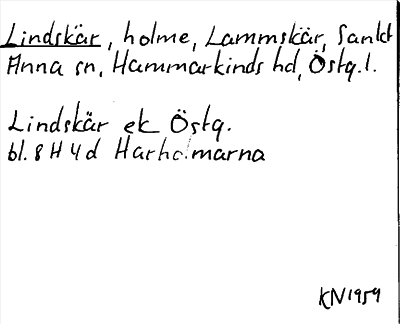 Lindskär, holme, Lammskär, Sankt
Anna sn, Hammarkinds hd, Östg.l.
Lindskär ek Östg.
bl. 8 H 4 d Harholmarna
KN 1959